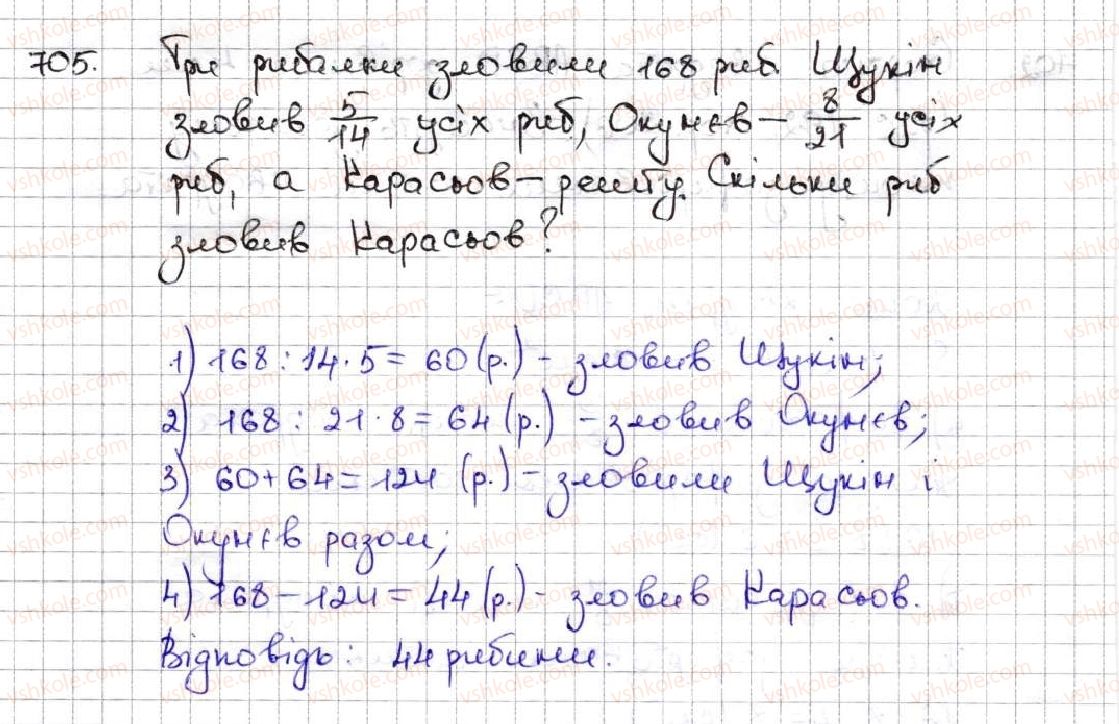 705. Три рибалки зловили 168 риб. Щукін
зловив 5/14 усіх риб, Окунєв – 8/21 усіх
риб, а Карасьов – решту. Скільки риб
зловив Карасьов?
1) 168 : 14 · 5 = 60 (р.) - зловив Щукін;
2) 168 : 21 · 8 = 64 (р.) - зловив Окунєв;
3) 60 + 64 = 124 (р.) - зловили Щукін і
Окунєв разом;
4) 168 - 124 = 44 (р.) - зловив Карасьов.
Відповідь: 44 рибини.